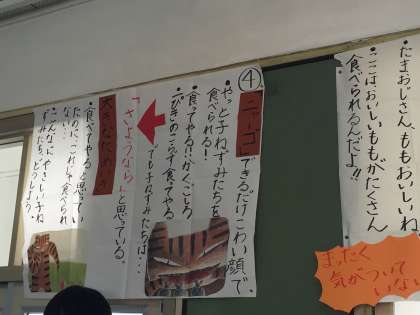 ・たまおじさん、ももおいしいね。
・ここは、おいしいももがたくさん
食べられるんだよ!!
まったく
気がついて
いない
④「ニャーゴ」できるだけこわい顔で。
・やっと子ねずみたちを
食べられる!
・食ってやる!!かくごしろ
・一ぴきのこらず食ってやる
「さようなら」と思っている。
でも子ねずみたちは…
大きなためいき
・食べてやると思ってい
たのに、これじゃ食べられ
ない…
・こんなに、やさしい子ね
ずみたち、どうしよう。